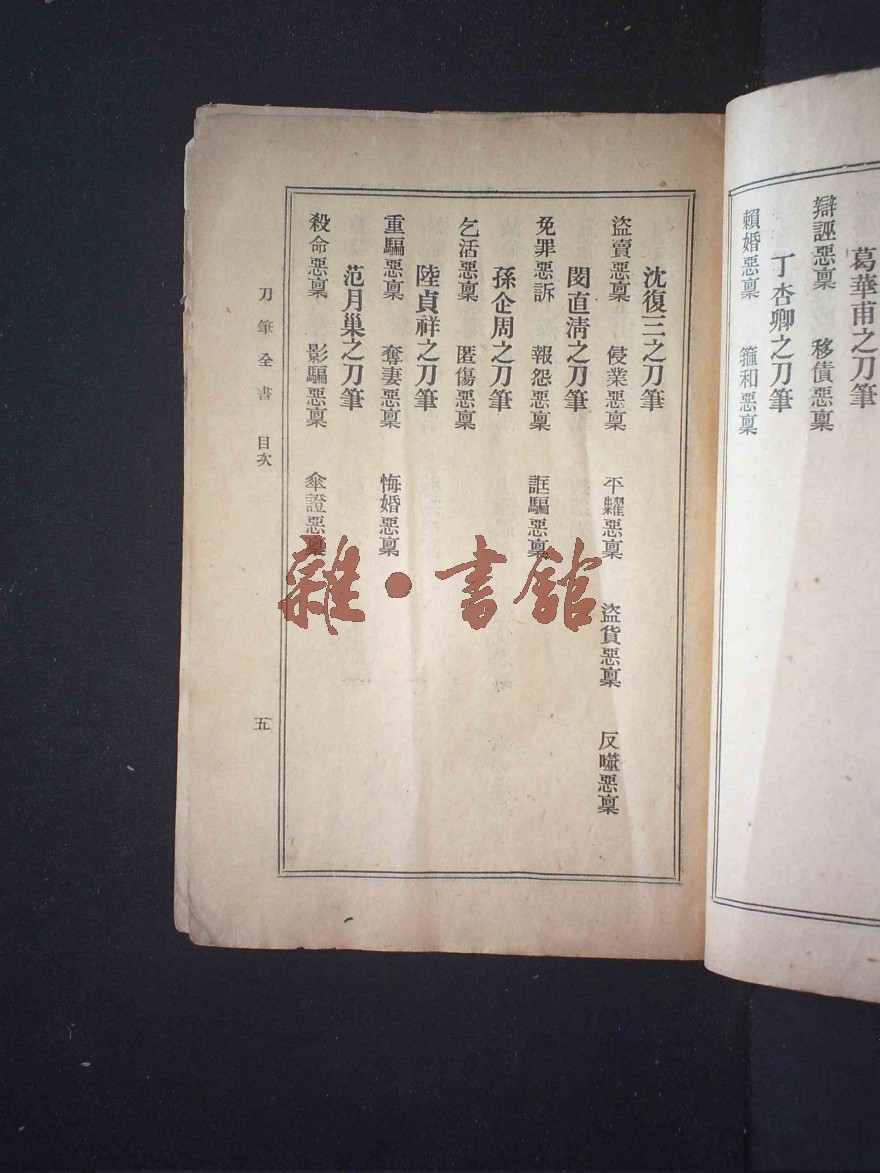 葛華甫之刀筆
辯誣惡稟 移債惡稟
丁杏卿之刀筆
賴婚惡稟 箍和惡稟
沈復三之刀筆
盜賣惡稟 侵業惡稟 平糶惡稟 盜貨惡稟 反噬惡稟
閔直淸之刀筆
免罪惡訴 報怨惡稟 誆騙惡稟
孫企周之刀筆
乞活惡稟 匿傷惡稟
陸貞祥之刀筆
重騙惡稟 奪妻惡稟 悔婚惡稟
范月巢之刀筆
殺命惡稟 影騙惡稟 傘證惡稟
刀筆全書 目次
五
雜·書館